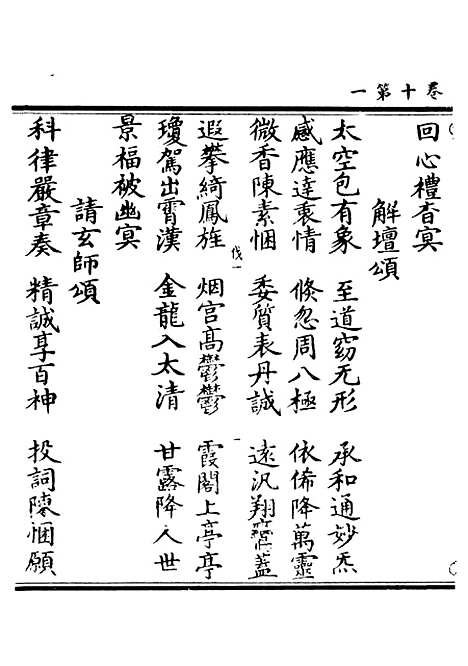 卷十第一
回心禮杳冥
解壇頌
太空包有象 至道窈无形 承和通妙炁
感應達秉情 倏忽周八極 依俙降萬靈
微香陳素悃 委質表丹誠 遠汎翔鸞蓋
伐一
遐攀綺鳳旌 烟宫高鬱鬱 霞閣上亭亭
瓊駕出霄漢 金龍入太清 甘露降人世
景福被幽冥
請玄師頌
科律嚴章奏 精誠享百神 投詞陳悃願